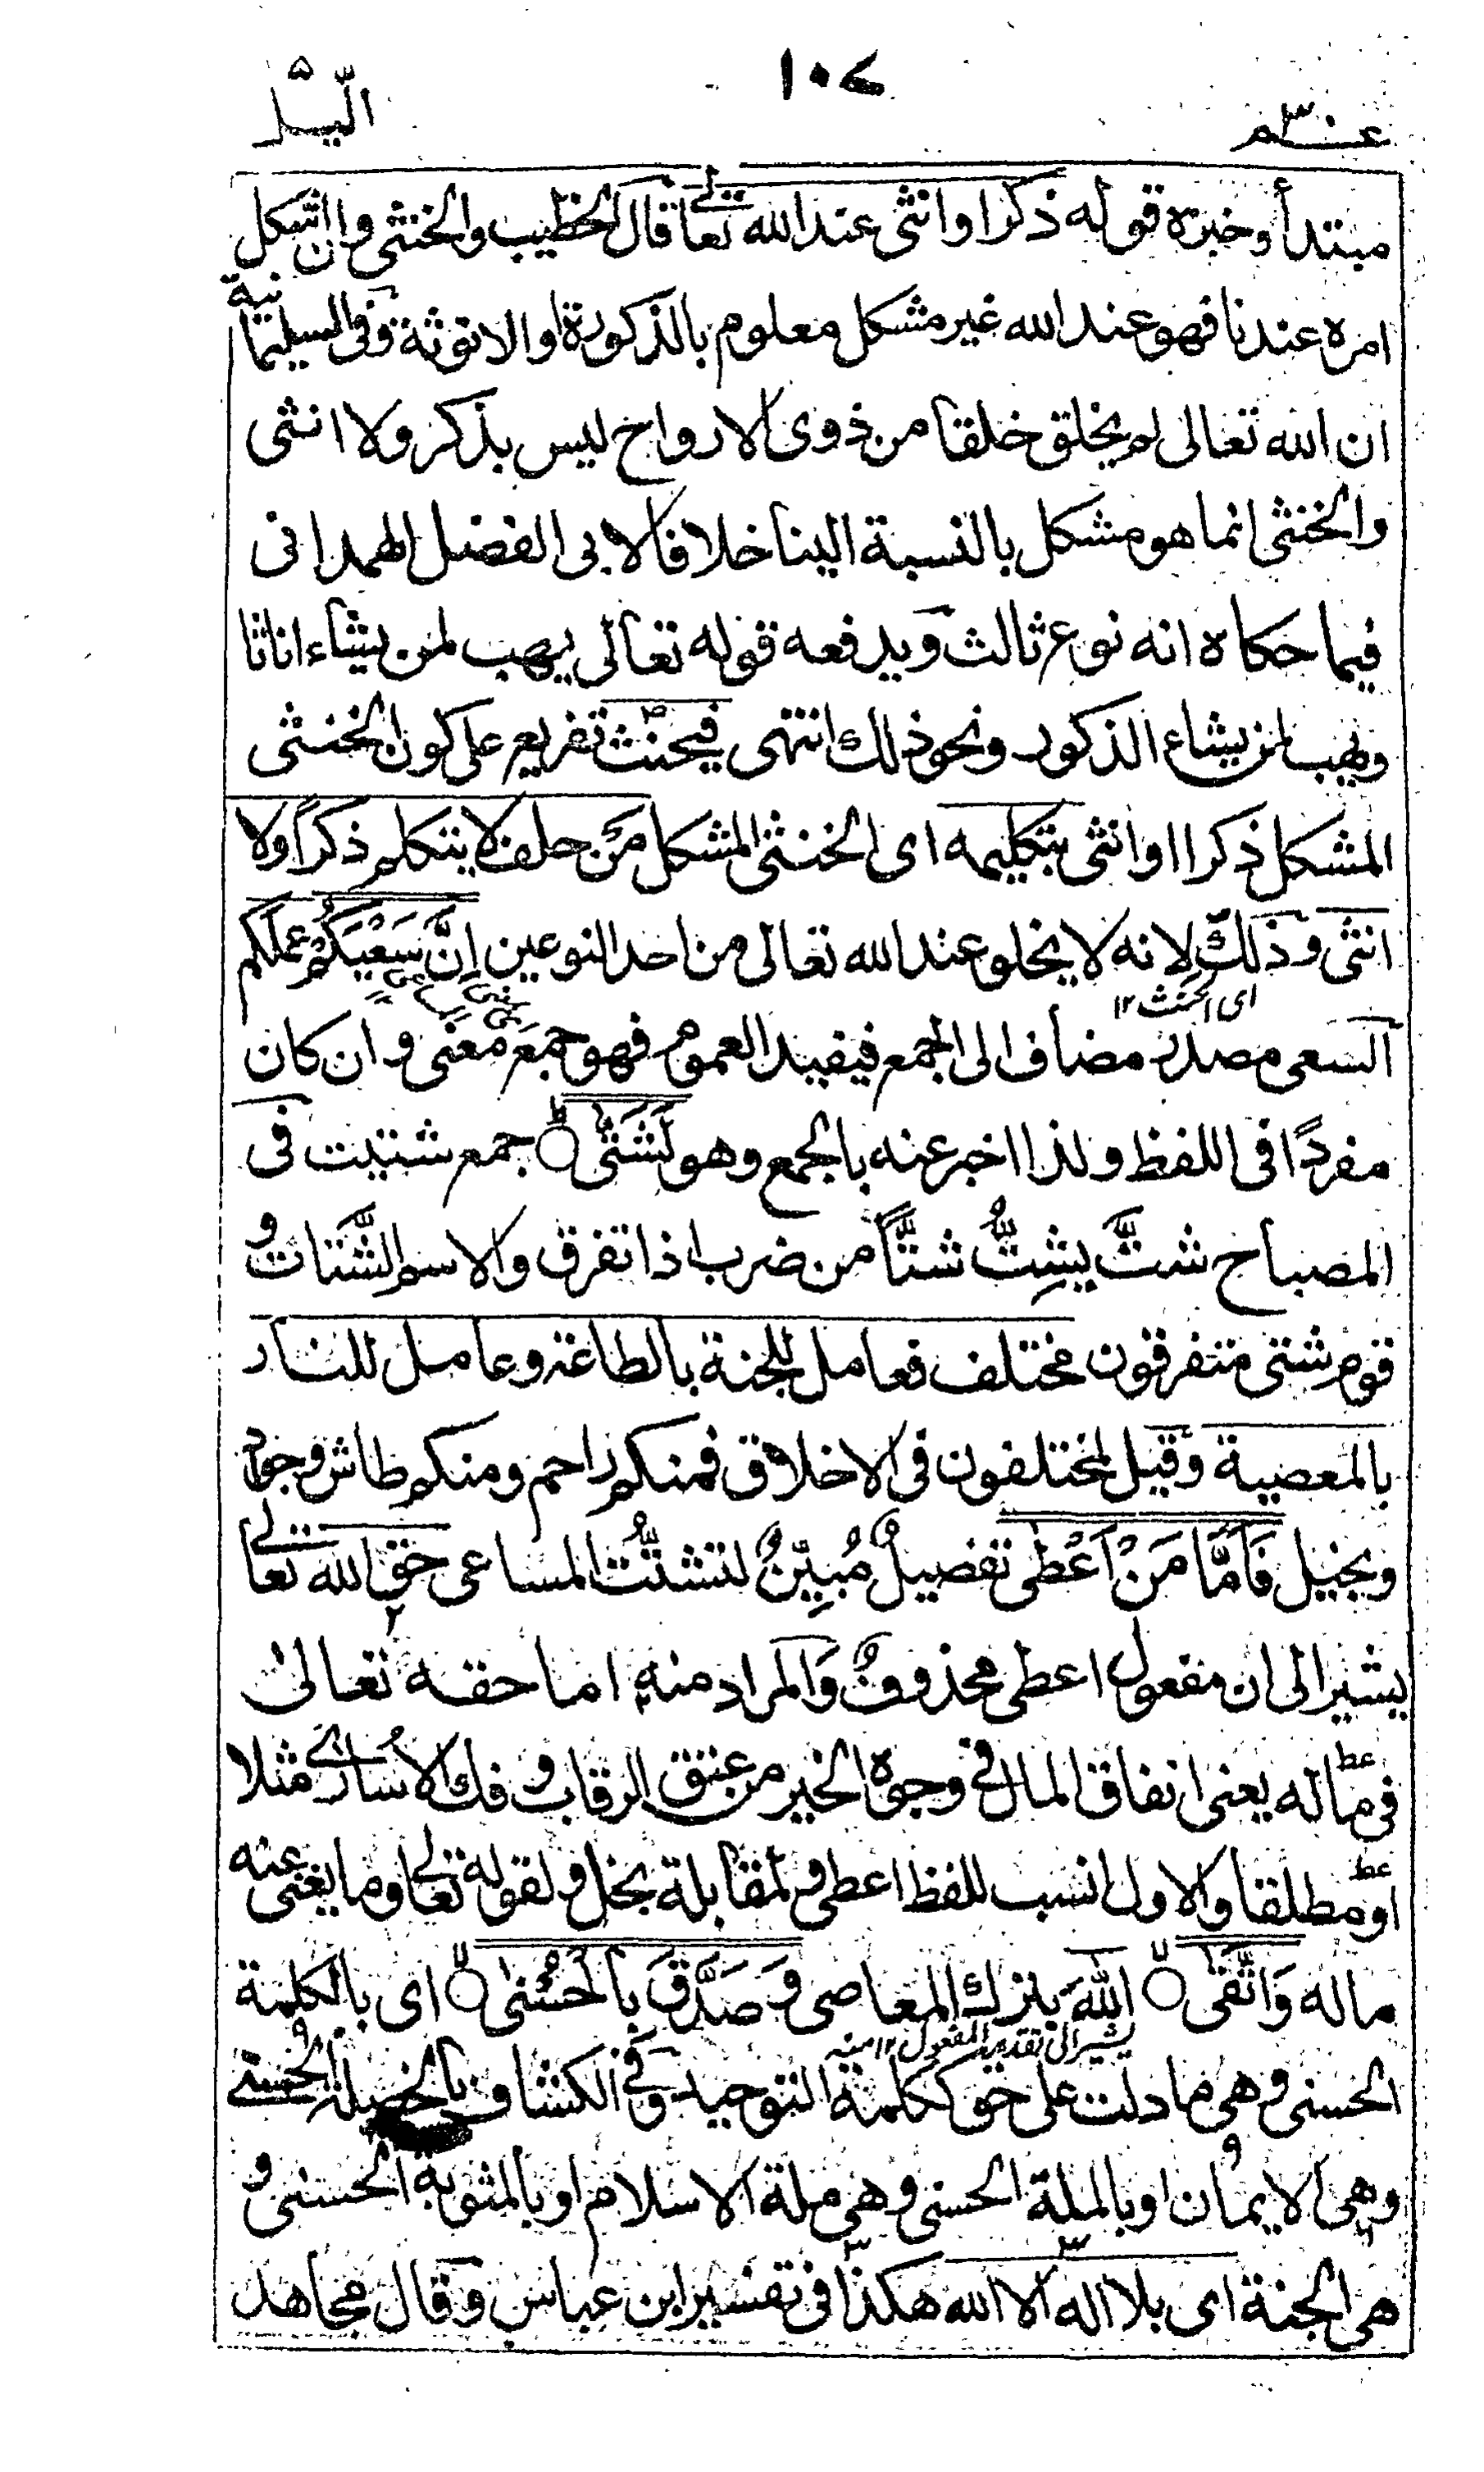 عـــم ٣٠
١٠٧
الّيـــل
مبتدأ وخبره قوله ذكرا وانثى عند الله تعالى قال الخطيب والخنثى وان اشكل
امره عندنا فهو عند الله غير مشكل معلوم بالذكورة او الانوثة وفى السليمانية
ان الله تعالى لم يخلق خلقا من ذوى الارواح ليس بذكر ولا انثى
والخنثى انما هو مشكل بالنسبة الينا خلافا لابى الفضل الهمدانى
فيما حكاه انه نوع ثالث ويدفعه قوله تعالى يهب لمن يشاء اناثا
ويهب لمن يشاء الذكور ونحو ذلك انتهى فيحنث تفريع على كون الخنثى
المشكل ذكرا او انثى بتكليمه اى الخنثى المشكل من حلف لا يتكلم ذكراً ولا
انثى وذلك لانه لا يخلو عند الله تعالى من احد النوعين اِنَّ سَعْيَكُمْ عملكم
اى الحنث ١٢
السعى مصدر مضاف الى الجمع فيفيد العموم فهو جمع معنى وان كان
مفردًا فى اللفظ ولذا اخبر عنه بالجمع وهو لَشَتّٰى جمع شتيت فى
المصباح شتَّ يشِتُّ شتًّا من ضرب اذا تفرق والاسم الشَّتات و
قوم شتى متفرقون مختلف فعامل للجنة بالطاعة وعامل للنار
بالمعصية وقيل لمختلفون فى الاخلاق فمنكم راحم ومنكم طاش وجواد
وبخيل فَاَمَّا مَنْ اَعْطٰى تفصيلٌ مُبيِّنٌ لتشتُّت المساعى حق الله تعالى
يشير الى ان مفعول اعطى محذوفٌ وَالمراد منه اما حقه تعالىٰ
فى ماله يعنى انفاق المال فى وجوه الخير من عتق الرقاب وفك الاُسارىٰ مثلا
او مطلقا والاول انسب للفظ اعطى ولمقابلة بخل ولقوله تعالى وما يغنى عنه
ماله وَاتَّقٰى اللهَ بترك المعاصى وَصَدَّقَ بِالْحُسْنٰى اى بالكلمة
يشير الى تقدير المفعول ١٢ منه
الحسنى وهى ما دلت على حق ككلمة التوحيد وفى الكشاف بالخصلة الحسنى
وهى الايمان او بالملة الحسنى وهى ملة الاسلام او بالمثوبة الحسنى و
هى الجنة اى بلا اله الا الله هكذا فى تفسير ابن عباس وقال مجاهد